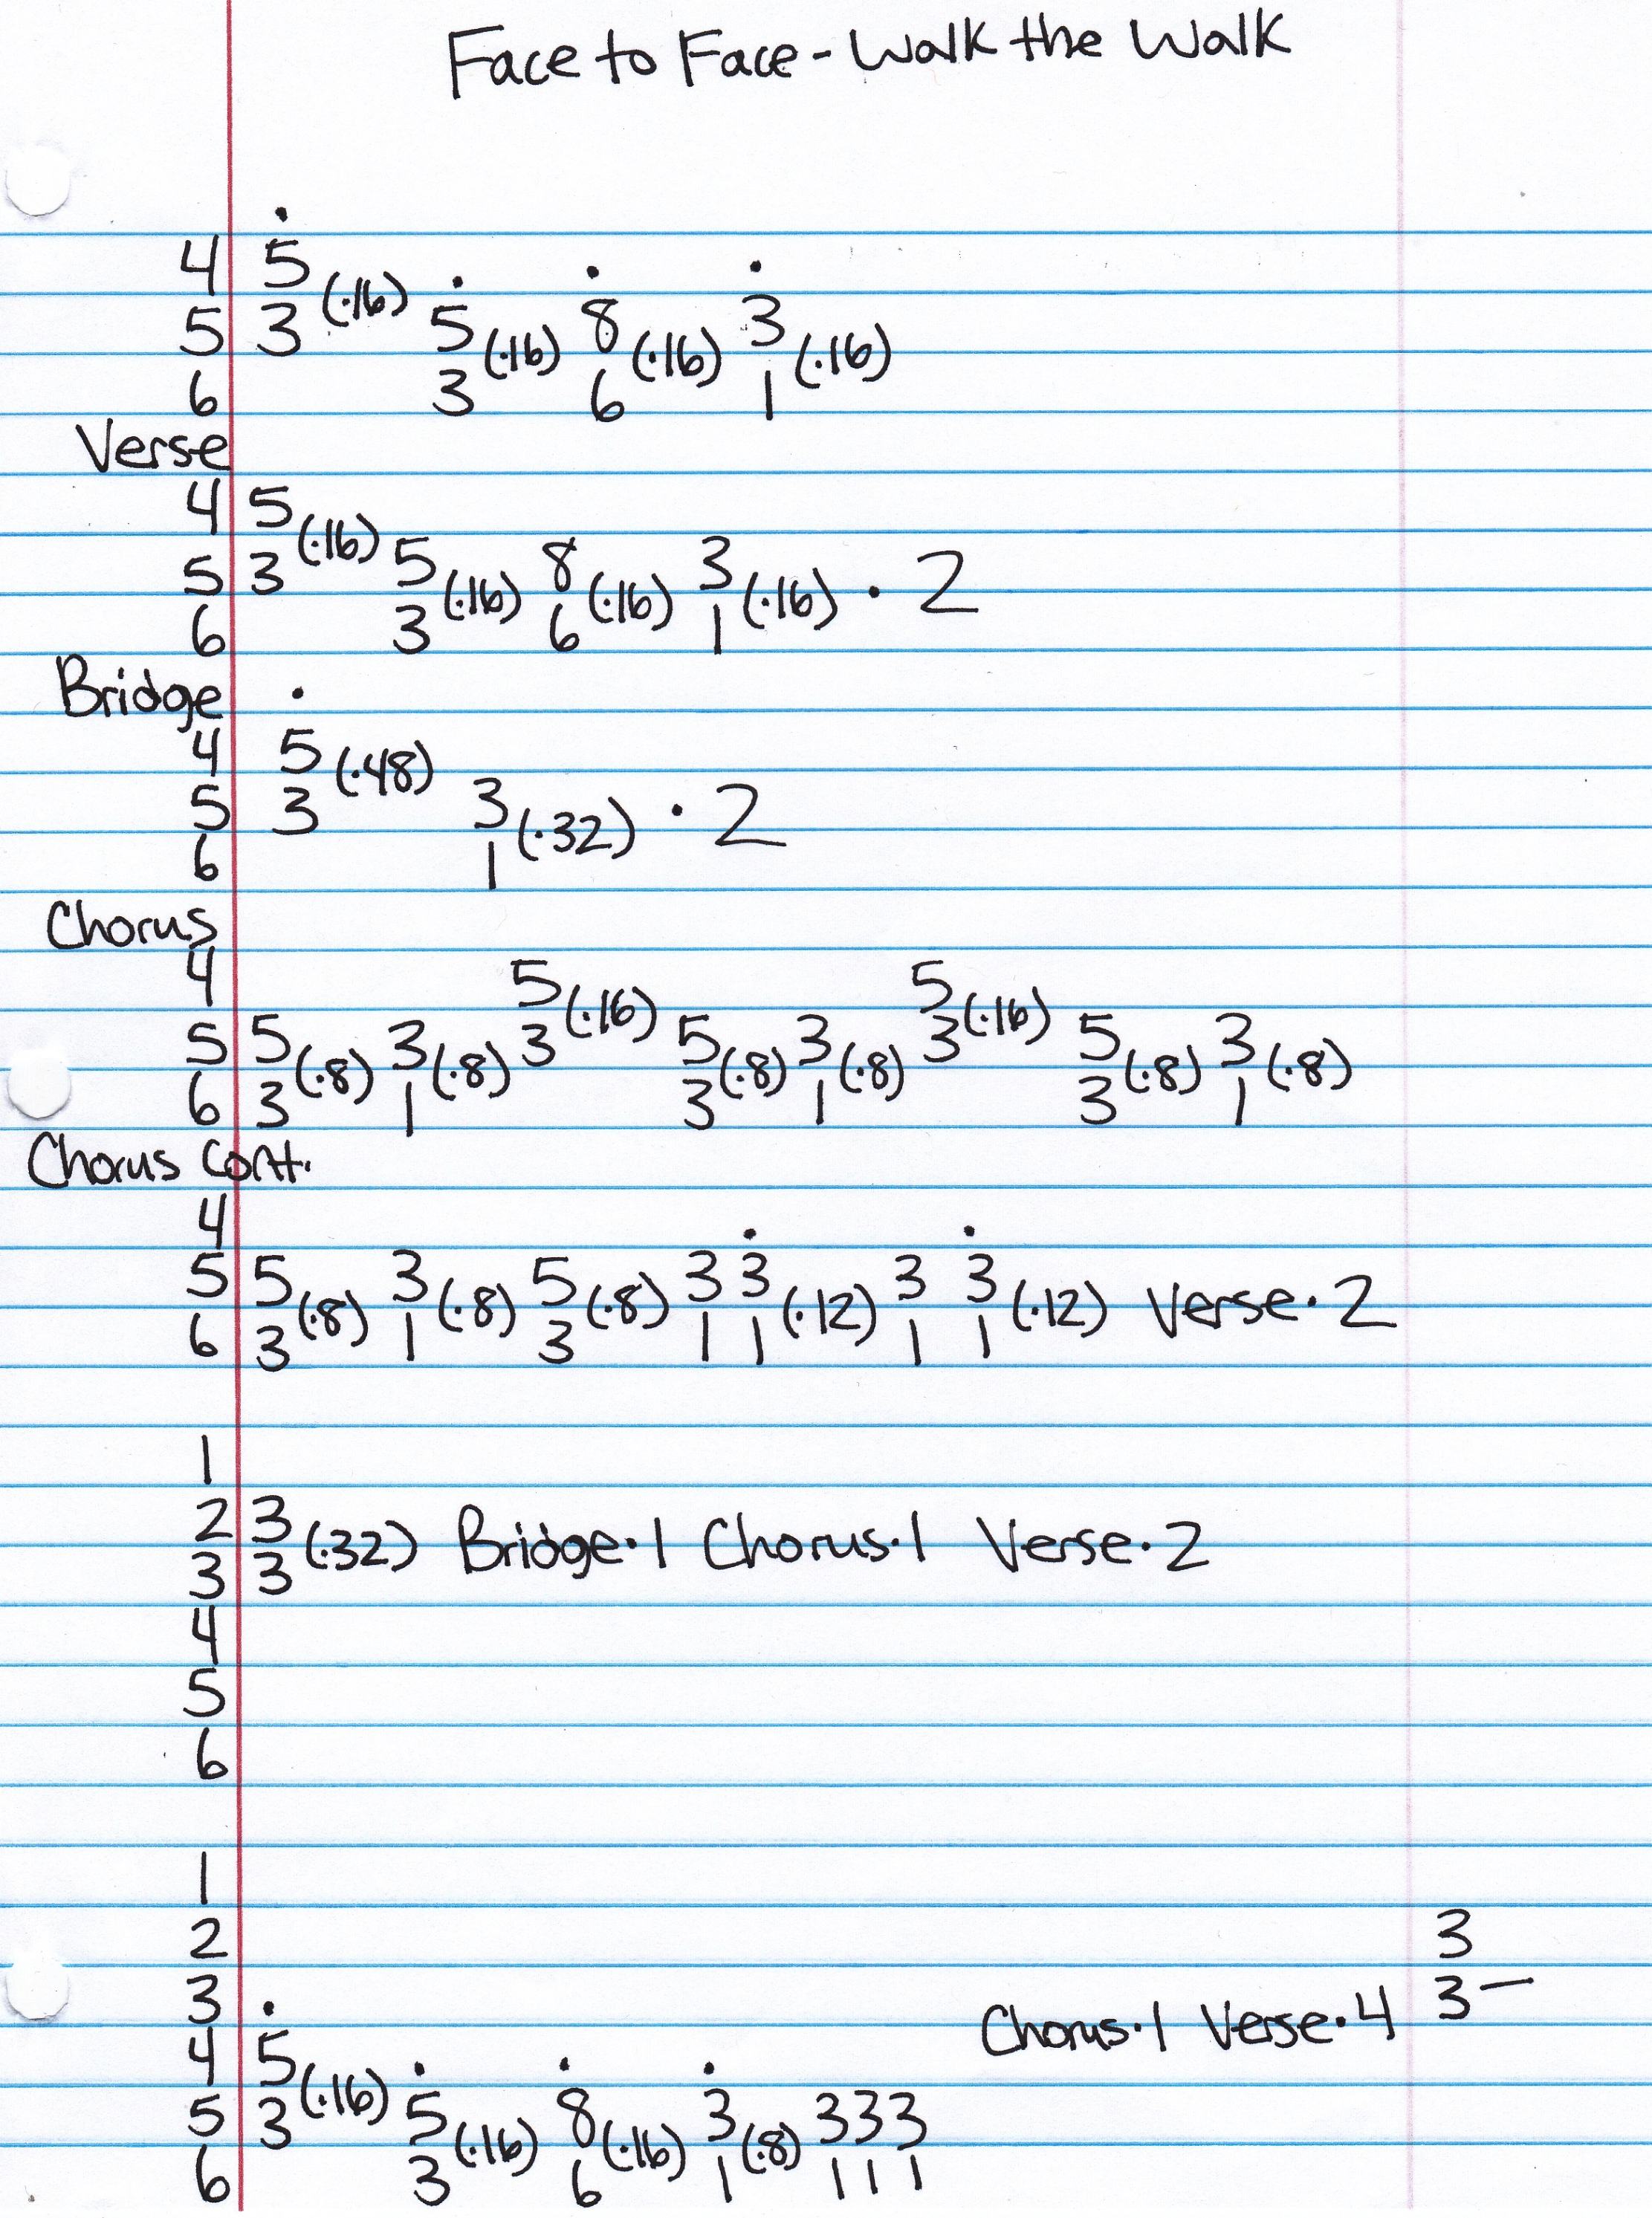 Face to Face - Walk the Walk
4 5 (·16)
5 3 5 (·16) 8 (·16) 3 (·16)
6 3 6 1
Verse
4 5 (·16)
5 3 5 (·16) 8 (·16) 3 (·16) · 2
6 3 6 1
Bridge
4 5 (·48)
5 3 3 (·32) · 2
6 1
Chorus
4 5 (·16) 5 (·16)
5 5 (·8) 3 (·8) 3 5 (·8) 3 (·8) 3 5 (·8) 3 (·8)
6 3 1 3 1 3 1
Chorus cont.
4
5 5 (·8) 3 (·8) 5 (·8) 3 3 (·12) 3 3 (·12) Verse · 2
6 3 1 3 1 1 1 1
1
2 3 (·32) Bridge · 1 Chorus · 1 Verse · 2
3 3
4
5
6
1
2 3
3 Chorus · 1 Verse · 4 3 —
4 5 (·16)
5 3 5 (·16) 8 (·16) 3 (·8) 3 3 3
6 3 6 1 1 1 1